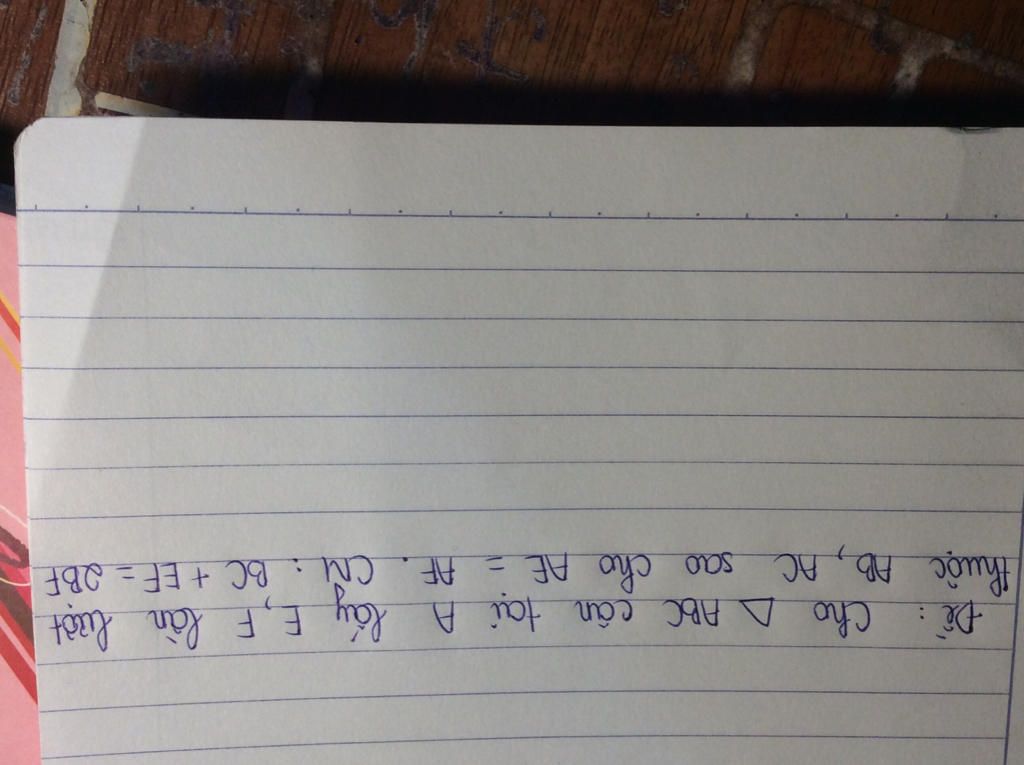 Đề : Cho △ ABC cân tại A lấy E, F lần lượt
thuộc AB, AC sao cho AE = AF. CM : BC + EF = 2BF